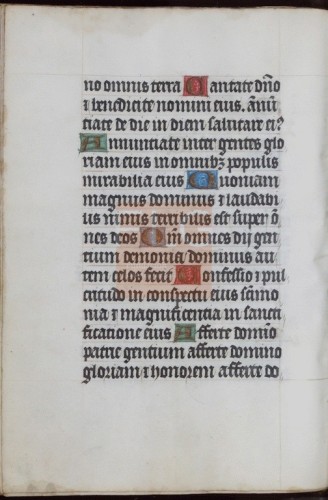 no omnis terra Cantate dño
⁊ benedicite nomini eius. ãnũ
tiate de die in diem salutare ei⁹
Annuntiate inter gentes glo
riam eius in omnibꝫ populis
mirabilia eius Quoniam
magnus dominus ⁊ laudabi
lis nimis terribilis est super õ
nes deos Qm̃ omnes dij gen
tium demonia dominus au
tem celos fecit Confessio ⁊ pul
critudo in conspectu eius sc̃imo
nia ⁊ magnificentia in sancti
ficatione eius Afferte domĩo
patrie gentium afferte domino
gloriam ⁊ honorem afferte do